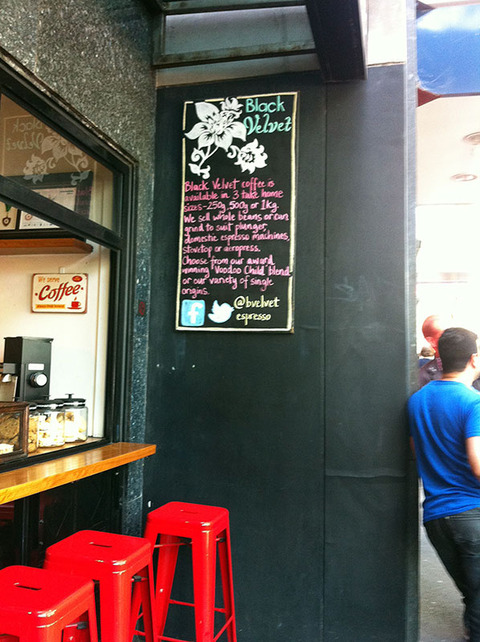 Black
Velvet
Black Velvet coffee is
available in 3 take home
sizes-250g, 500g or 1kg.
We sell whole beans or can
grind to suit plunger,
domestic espresso machines,
stovetop or aeropress.
Choose from our award
winning "Voodoo Child" blend
or our variety of single
origins.
f
@bvelvet
espresso
Coffee